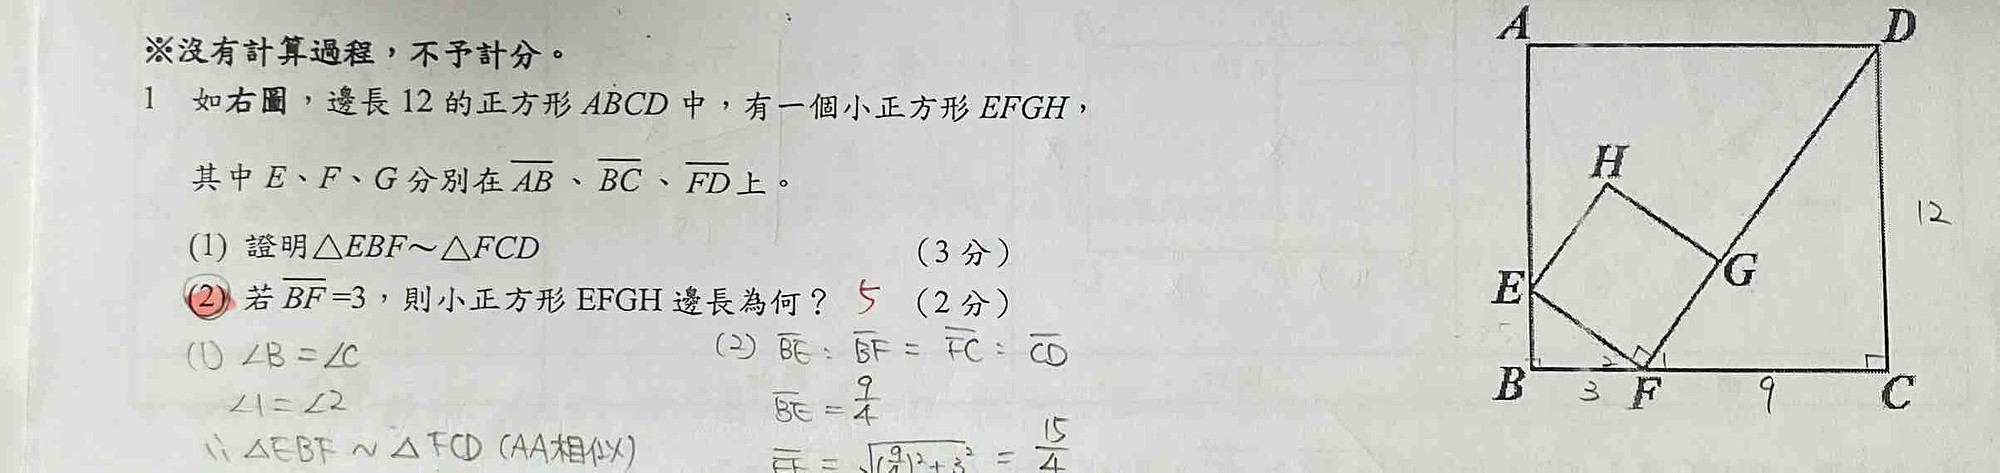 ※沒有計算過程，不予計分。
1 如右圖，邊長 12 的正方形 ABCD 中，有一個小正方形 EFGH，
其中 E、F、G 分別在 AB、BC、FD 上。
(1) 證明△EBF～△FCD (3 分)
(2) 若 BF=3，則小正方形 EFGH 邊長為何？ 5 (2 分)
(1) ∠B = ∠C
∠1 = ∠2
∴ △EBF ~ △FCD (AA相似)
(2) BE : BF = FC : CD
BE = 9/4
EF = √(9/4)²+3² = 15/4
A D
H
12
E G
2 1
B 3 F 9 C